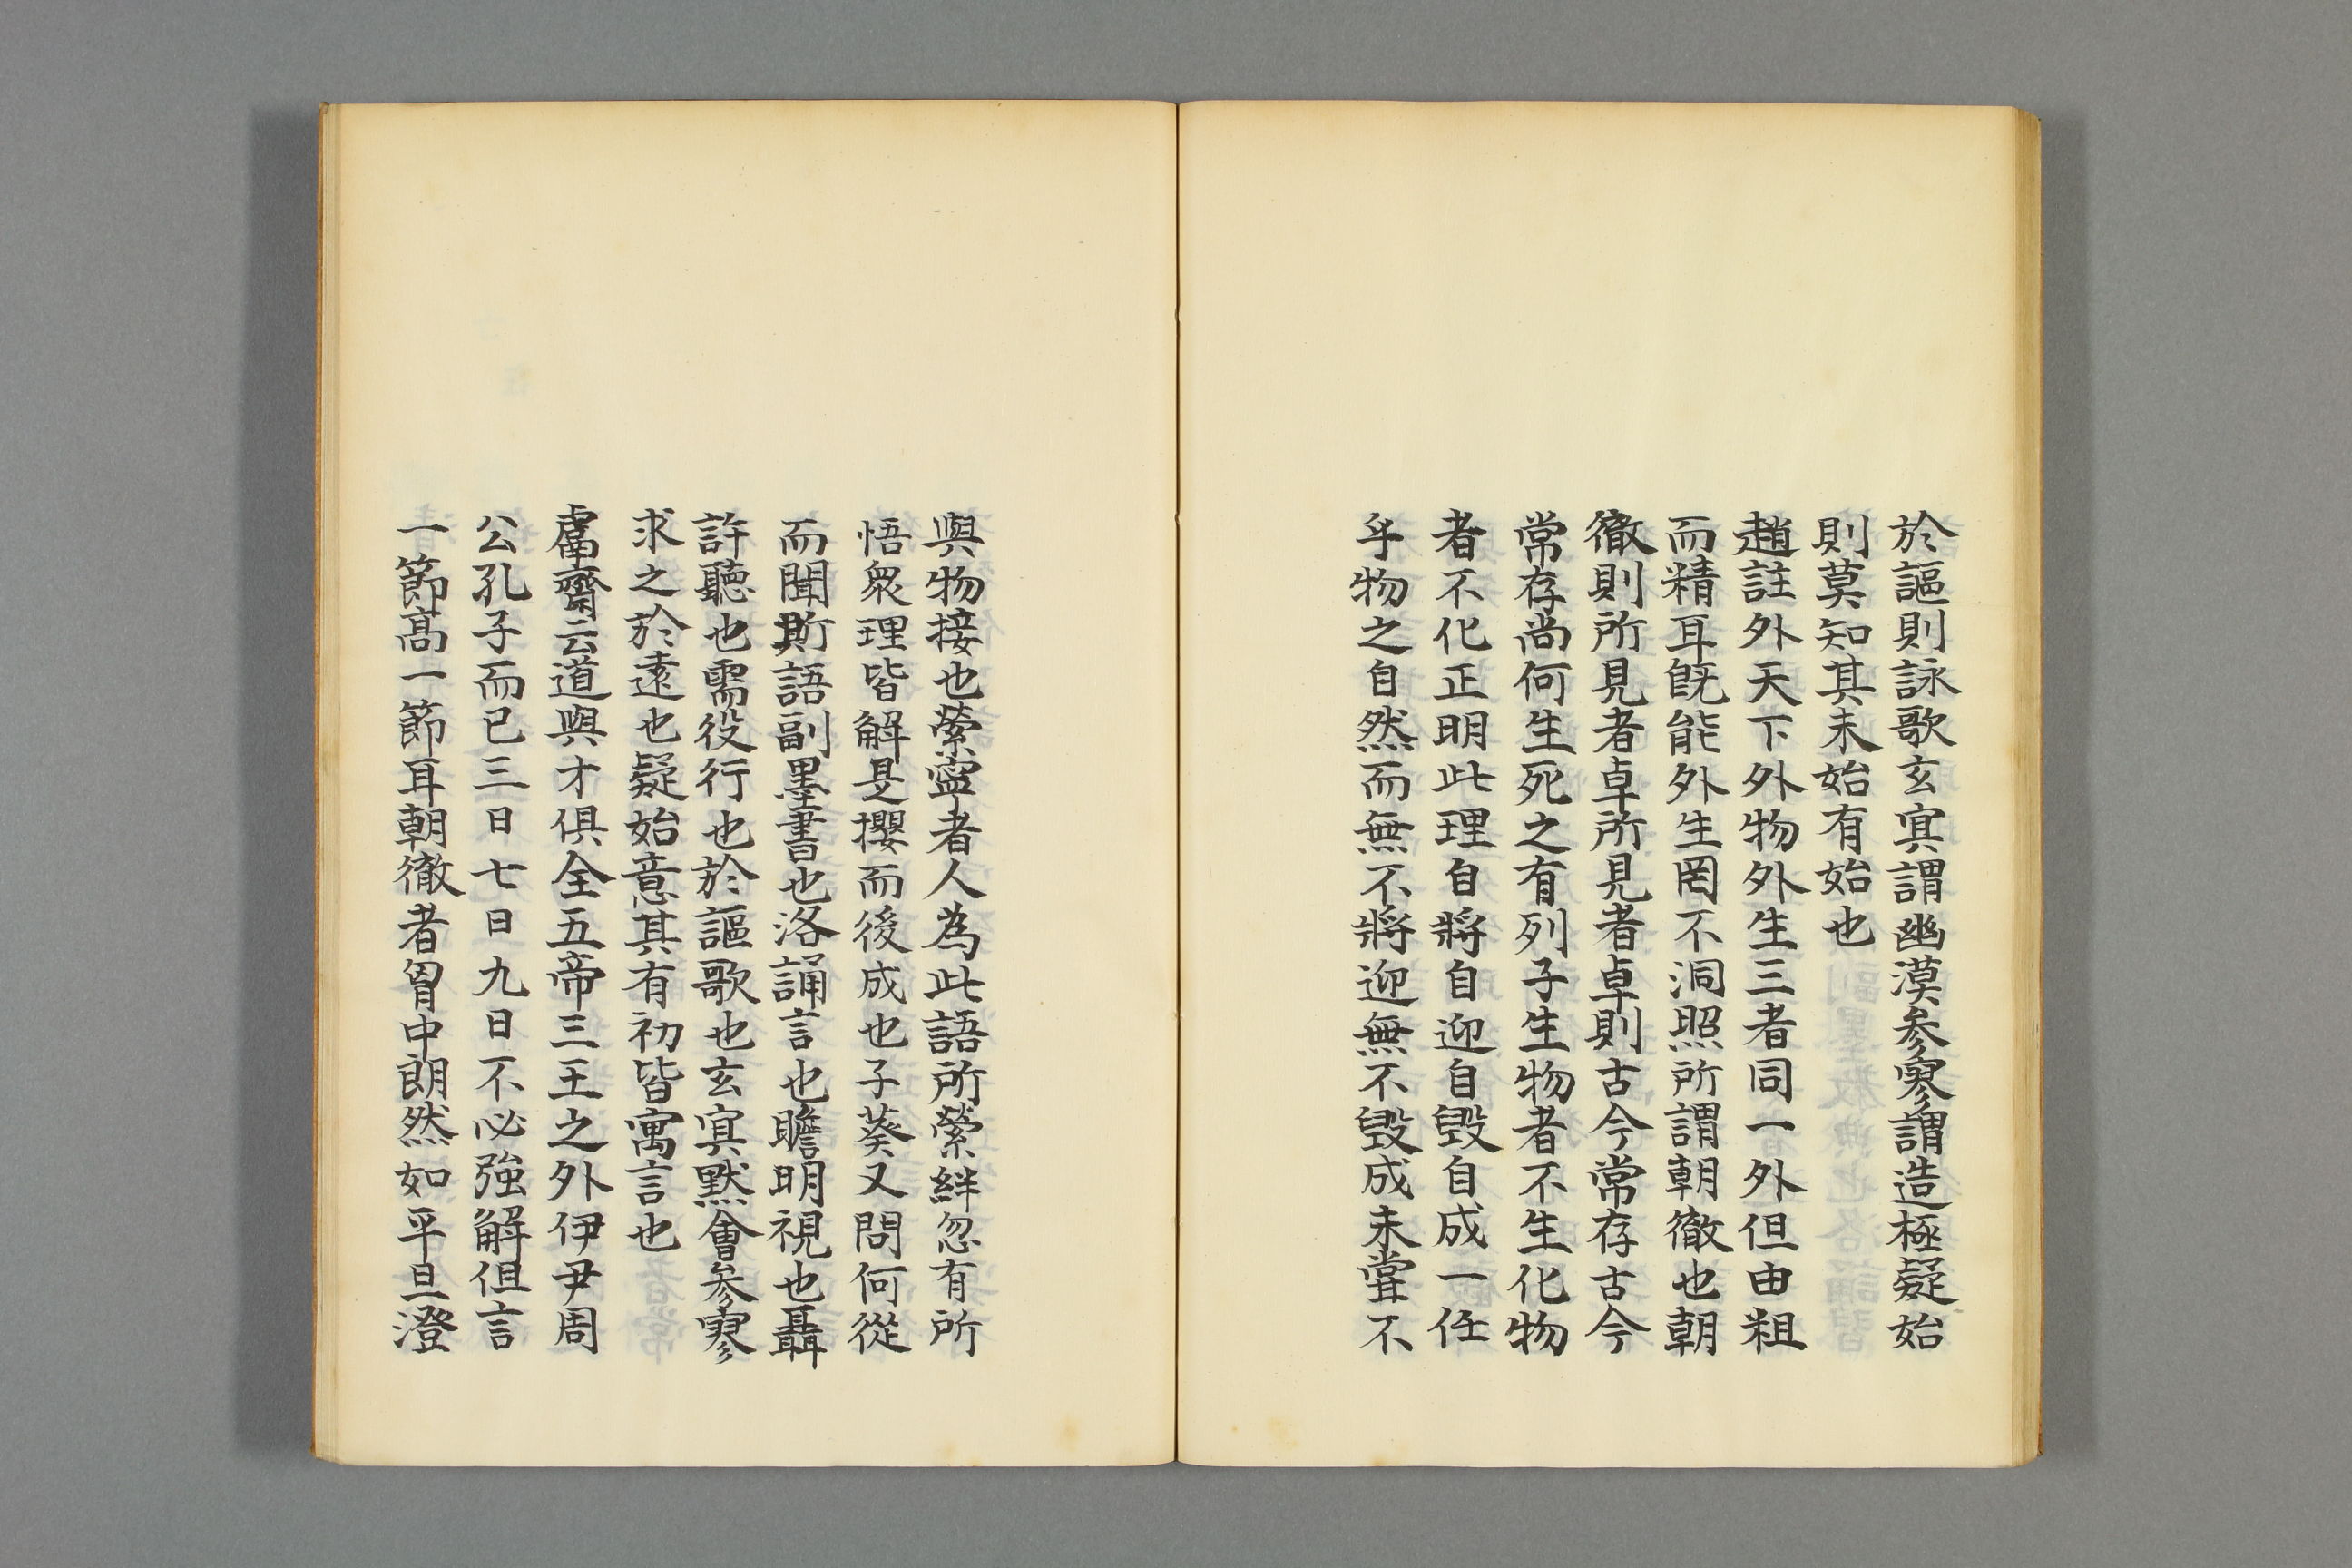 於謳則詠歌玄㝠謂幽漠参寥謂造極疑始
則莫知其未始有始也
趙註外天下外物外生三者同一外但由粗
而精耳既能外生罔不洞照所謂朝徹也朝
徹則所見者卓所見者卓則古今常存古今
常存尚何生死之有列子生物者不生化物
者不化正明此理自將自迎自毀自成一任
乎物之自然而無不將迎無不毀成未甞不
與物接也縈寕者人為此語所縈絆忽有所
悟衆理皆解是攖而後成也子葵又問何從
而聞斯語副墨書也洛誦言也瞻明視也聶
許聽也需役行也於謳歌也玄㝠默會参寥
求之於遠也疑始意其有初皆寓言也
鬳齋云道與才俱全五帝三王之外伊尹周
公孔子而已三日七日九日不必強解但言
一節高一節耳朝徹者胷中朗然如平旦澄